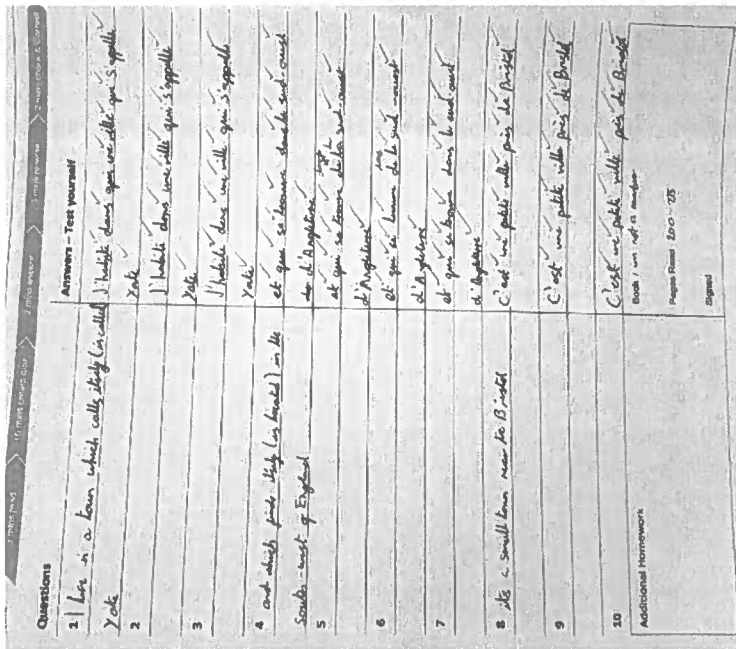 Questions
1 I live in a town which calls itself (is called)
Yate
2
3
4 and which finds itself (is located) in the
South-west of England
5
6
7
8 its a small town near to Bristol
9
10
Additional Homework
Answers – Test yourself
J'habite dans une ville qui s'appelle
Yate
J'habite dans une ville qui s'appelle
Yate
J'habite dans une ville qui s'appelle
Yate
et qui se trouve dans le sud-ouest
d'Angleterre
et qui se trouve le sud-ouest
d'Angleterre
et qui se trouve le sud-ouest
d'Angleterre
et qui se trouve dans le sud-ouest
d'Angleterre
C'est une petite ville près de Bristol
C'est une petite ville près de Bristol
C'est une petite ville près de Bristol
Book I am not a number
Pages Read 200-25
Signed